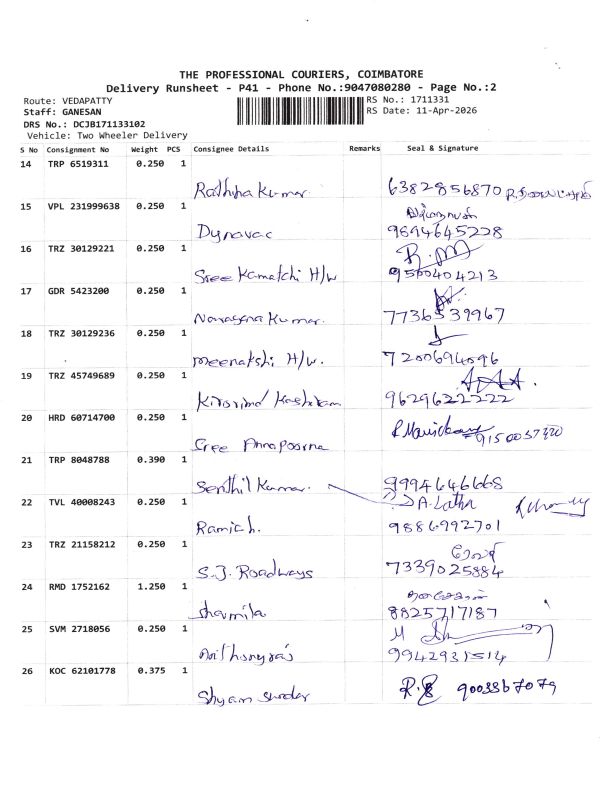 THE PROFESSIONAL COURIERS, COIMBATORE
Delivery Runsheet - P41 - Phone No.:9047080280 - Page No.:2
Route: VEDAPATTY RS No.: 1711331
Staff: GANESAN RS Date: 11-Apr-2026
DRS No.: DCJB171133102
Vehicle: Two Wheeler Delivery
S No Consignment No Weight PCS Consignee Details Remarks Seal & Signature
14 TRP 6519311 0.250 1
Kumar 6382856870
15 VPL 231999638 0.250 1
Dynavac 9894645228
16 TRZ 30129221 0.250 1
Sree Kamatchi H/W 9500404213
17 GDR 5423200 0.250 1
Kumar. 7736539967
18 TRZ 30129236 0.250 1
meenakshi H/w. 7200694596
19 TRZ 45749689 0.250 1
9629622222
20 HRD 60714700 0.250 1
Sree Annapoorna
21 TRP 8048788 0.390 1
Senthil Kumar. 9994646668
22 TVL 40008243 0.250 1
A. Latha
9886992701
23 TRZ 21158212 0.250 1
S.J. Roadways 7339025884
24 RMD 1752162 1.250 1
Sharmila 8825717187
25 SVM 2718056 0.250 1
9942931514
26 KOC 62101778 0.375 1
Shyam Sunder